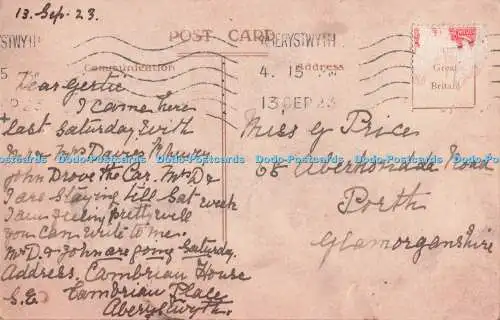 13. Sep. 23.
POST CARD
Communication
Address
ABERYSTWYTH
4. 15
13 SEP 23
Great
Britain
Dear Gertie
I came here
last Saturday with
Mr & Mrs Davies
John Drove the Car. Mrs D &
I are Staying till Sat week
I am feeling pretty well
you can write to me.
Mr D. & John are going Saturday.
Address, Cambrian House
S.E. Cambrian Place
Aberystwyth.
Miss G Price
68 Aberhondda Road
Porth
Glamorganshire
Dodo-Postcards Dodo-Postcards Dodo-Postcards Dodo-Postcards Dodo-Postcards Dodo-Postcards